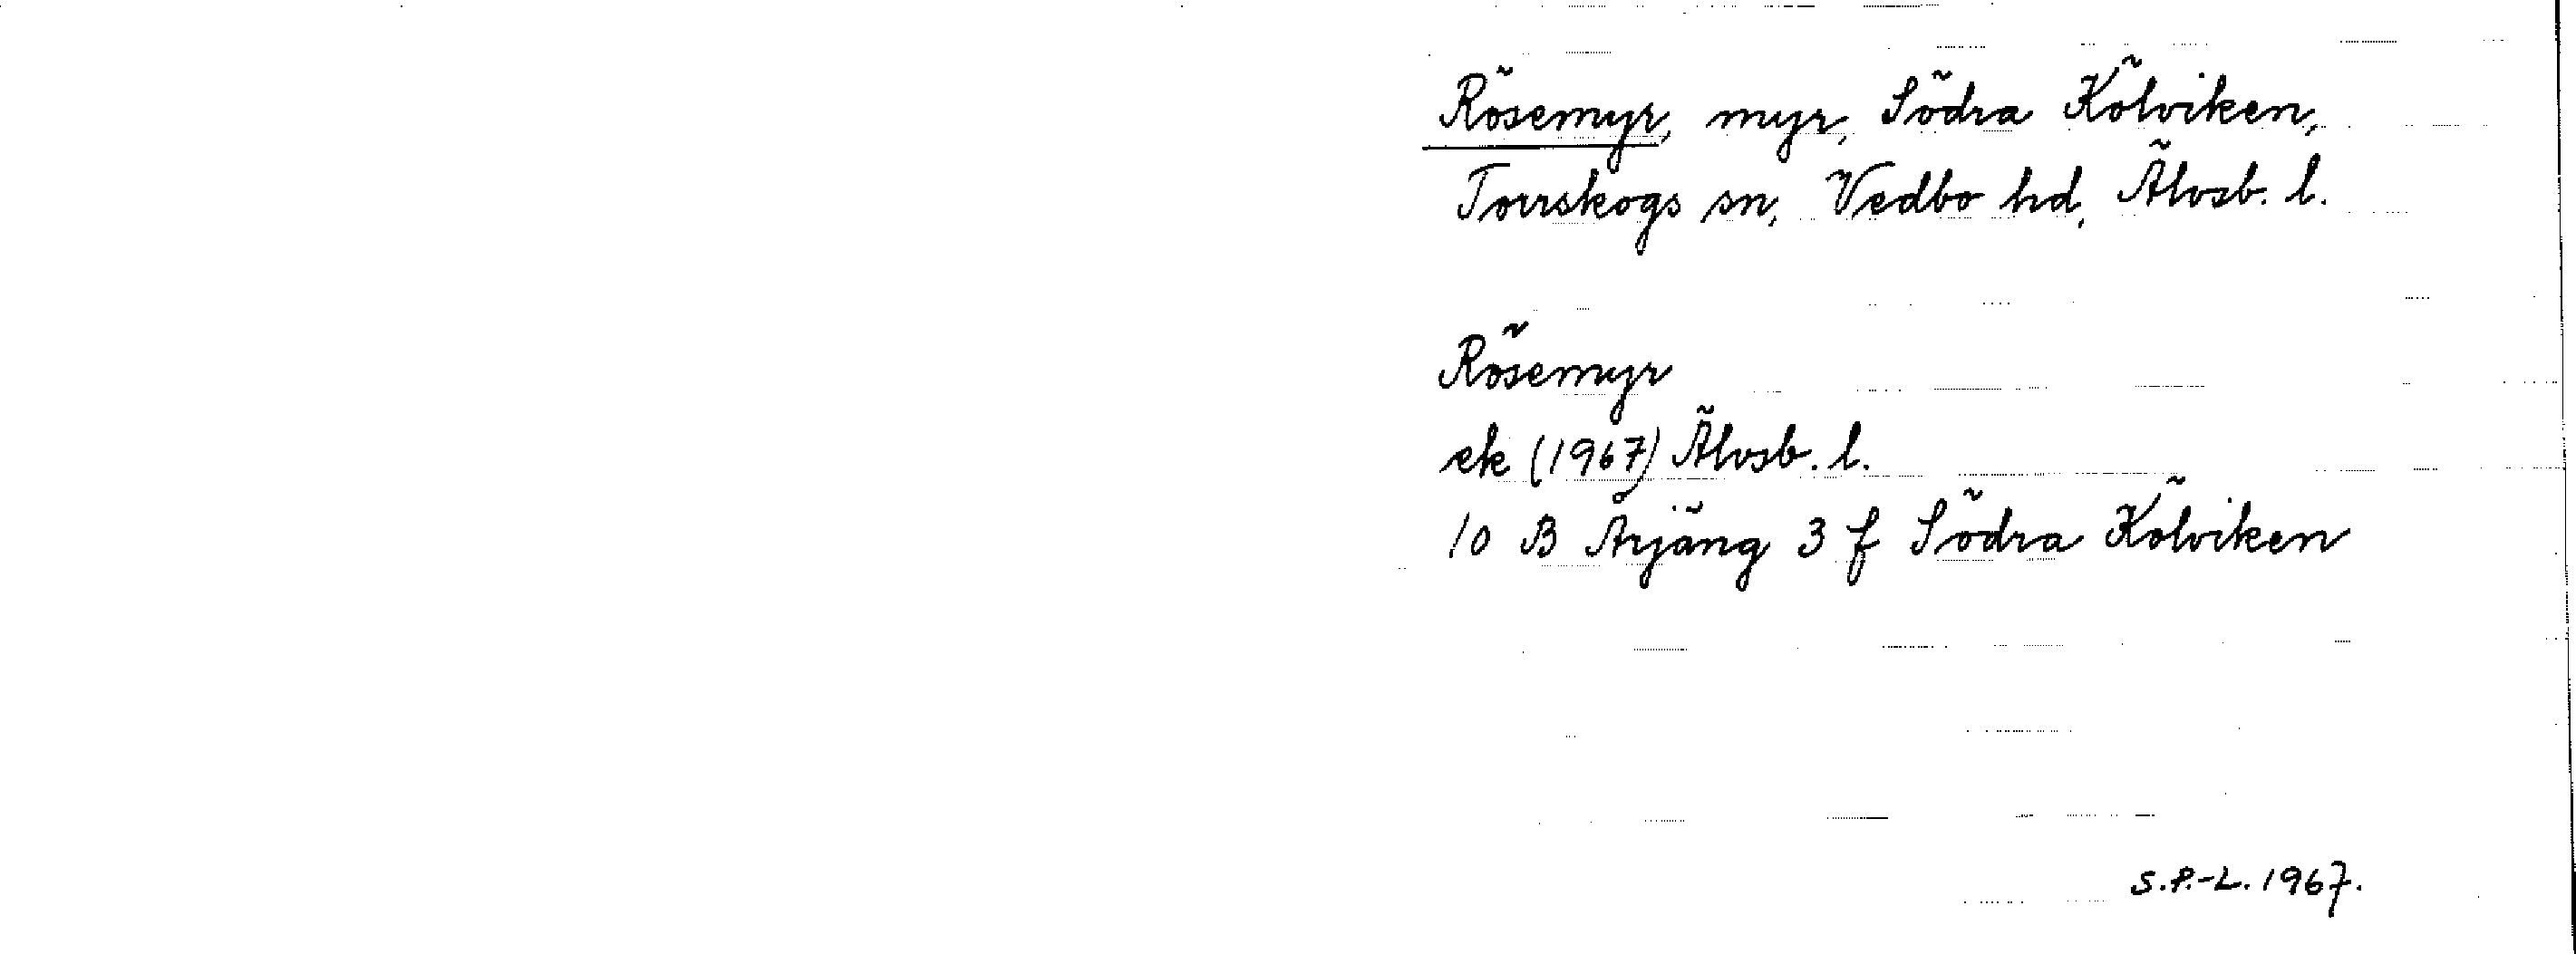 Rösemyr, myr, Södra Kölviken,
Torrskogs sn, Vedbo hd, Älvsb. l.
Rösemyr
ek (1967) Älvsb. l.
10 B Årjäng 3 f Södra Kölviken
S.P.-L. 1967.